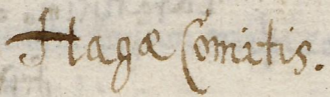 Hagæ Comitis.